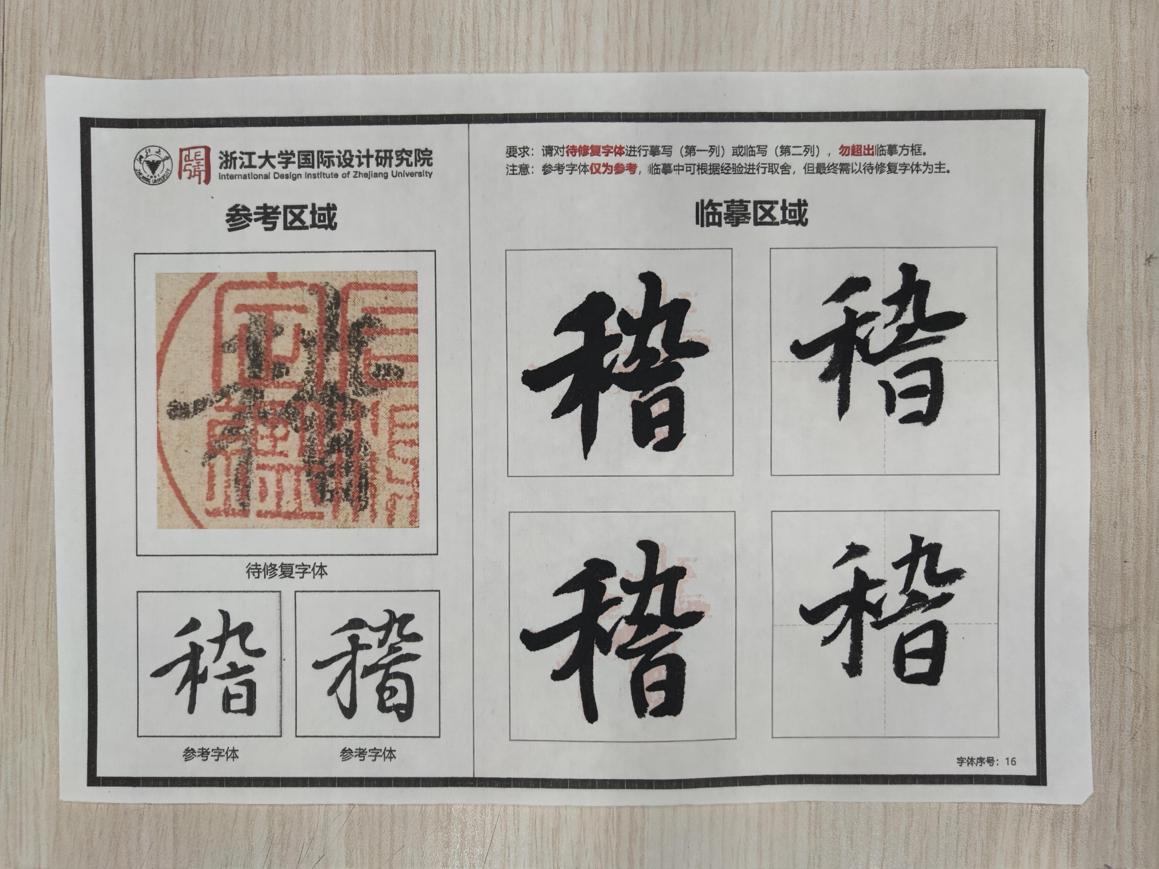 浙江大学国际设计研究院
International Design Institute of Zhejiang University
参考区域
待修复字体
稽
稽
参考字体
参考字体
要求：请对待修复字体进行摹写（第一列）或临写（第二列），勿超出临摹方框。
注意：参考字体仅为参考，临摹中可根据经验进行取舍，但最终需以待修复字体为主。
临摹区域
稽
稽
稽
稽
字体序号：16